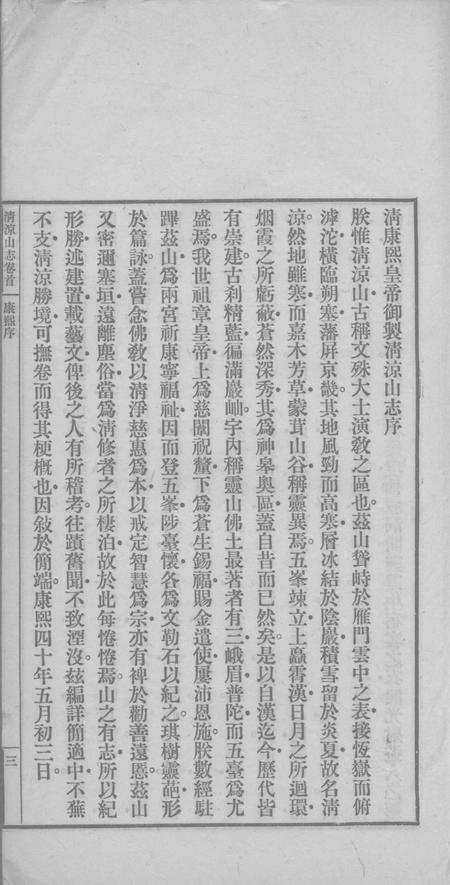 清康熙皇帝御製清涼山志序
朕惟清涼山古稱文殊大士演教之區也。茲山聳峙於雁門雲中之表。接恆嶽而俯
滹沱。橫臨朔塞。藩屏京畿。其地風勁而高寒。層冰結於陰巖。積雪留於炎夏。故名清
涼。然地雖寒。而嘉木芳草。蒙茸山谷。稱靈異焉。五峯竦立。上矗霄漢。日月之所迴環。
烟霞之所虧蔽。蒼然深秀。其為神皋奧區。蓋自昔而已然矣。是以自漢迄今。歷代皆
有崇建。古刹精藍。徧滿巖岫。宇內稱靈山佛土。最著者有三。峨眉普陀。而五臺為尤
盛焉。我世祖章皇帝。上為慈闈祝釐。下為蒼生錫福。賜金遣使。屢沛恩施。朕數經駐
蹕茲山。為兩宮祈康寧福祉。因而登五峯。陟臺懷。各為文勒石以紀之。琪樹靈葩。形
於篇詠。蓋嘗念佛教以清淨慈惠為本。以戒定智慧為宗。亦有裨於勸善遠慝。茲山
又密邇塞垣。遠離塵俗。當為清修者之所棲泊。故於此每惓惓焉。山之有志。所以紀
形勝。述建置。載藝文。俾後之人有所稽考。往蹟舊聞。不致湮沒。茲編詳簡適中。不蕪
不支。清涼勝境。可撫卷而得其梗概也。因敍於簡端。康熙四十年五月初三日。
清涼山志卷首
康熙序
三